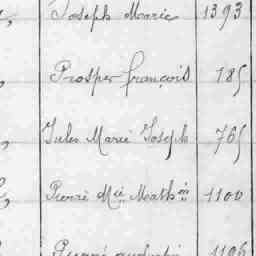 Joseph Marie 1393
Prosper françois 185
Jules Marie Joseph 765
Pierre Mie Mathin 1100
1106